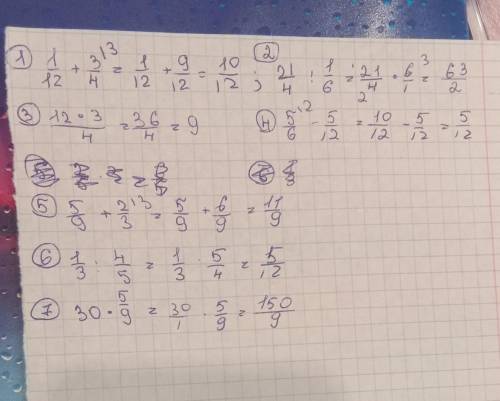 ① 1/12 + 3/4 ^13 = 1/12 + 9/12 = 10/12 ; ② 21/4 : 1/6 = 21/4 2 · 6/1 3 = 63/2
③ 12·3/4 = 36/4 = 9 ④ 5/6 ^12 - 5/12 = 10/12 - 5/12 = 5/12
⑤ 5/9 + 2/3 ^13 = 5/9 + 6/9 = 11/9
⑥ 1/3 : 4/5 = 1/3 · 5/4 = 5/12
⑦ 30 · 5/9 = 30/1 · 5/9 = 150/9